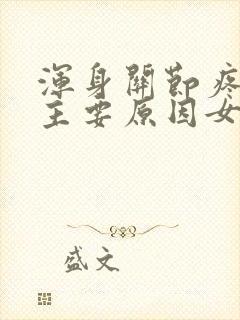 渾身關節疼
主要原因女
盛文